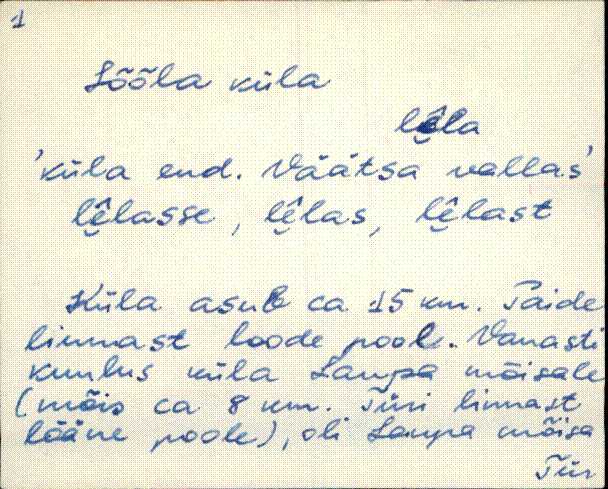 1
Lõõla küla
lê̮la
'küla end. Väätsa vallas'
lê̮lasse, lê̮las, lê̮last
Küla asub ca 15 km. Paide
linnast loode pool. Vanasti
kuulus küla Laupa mõisale
(mõis ca 8 km. Türi linnast
lääne poole), oli Laupa mõisa
Tür